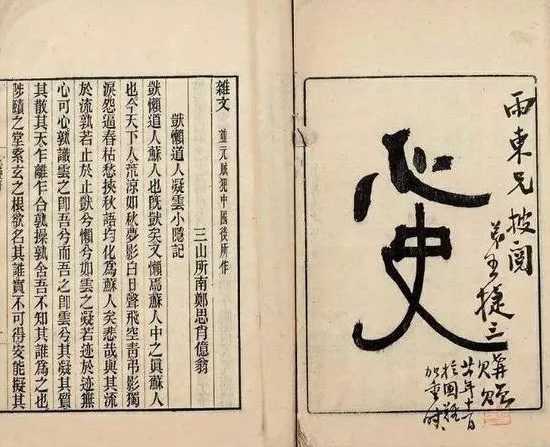 雨東兄披閱
弟王捷三
購贈
廿年十二月
於國難
加重時
心史
雜文 並元賊犯中國後所作
獃懶道人凝雲小隱記
三山所南鄭思肖億翁
獃懶道人蘇人也旣獃矣又懶焉蘇人中之眞蘇人
也今天下人荒涼如秋夢影白日聲飛空靑弔影獨
淚怨過春枯愁挾秋語均化爲蘇人矣悲哉與其流
於流孰若止於止獃兮懶兮如雲之凝若迹於迹無
心可心孰識雲之卽吾兮而吾之卽雲兮其凝其質
其散其天乍離乍合孰操孰舍吾不知其誰爲之也
陟賾之堂索玄之根欲名其誰實不可得安能擬其